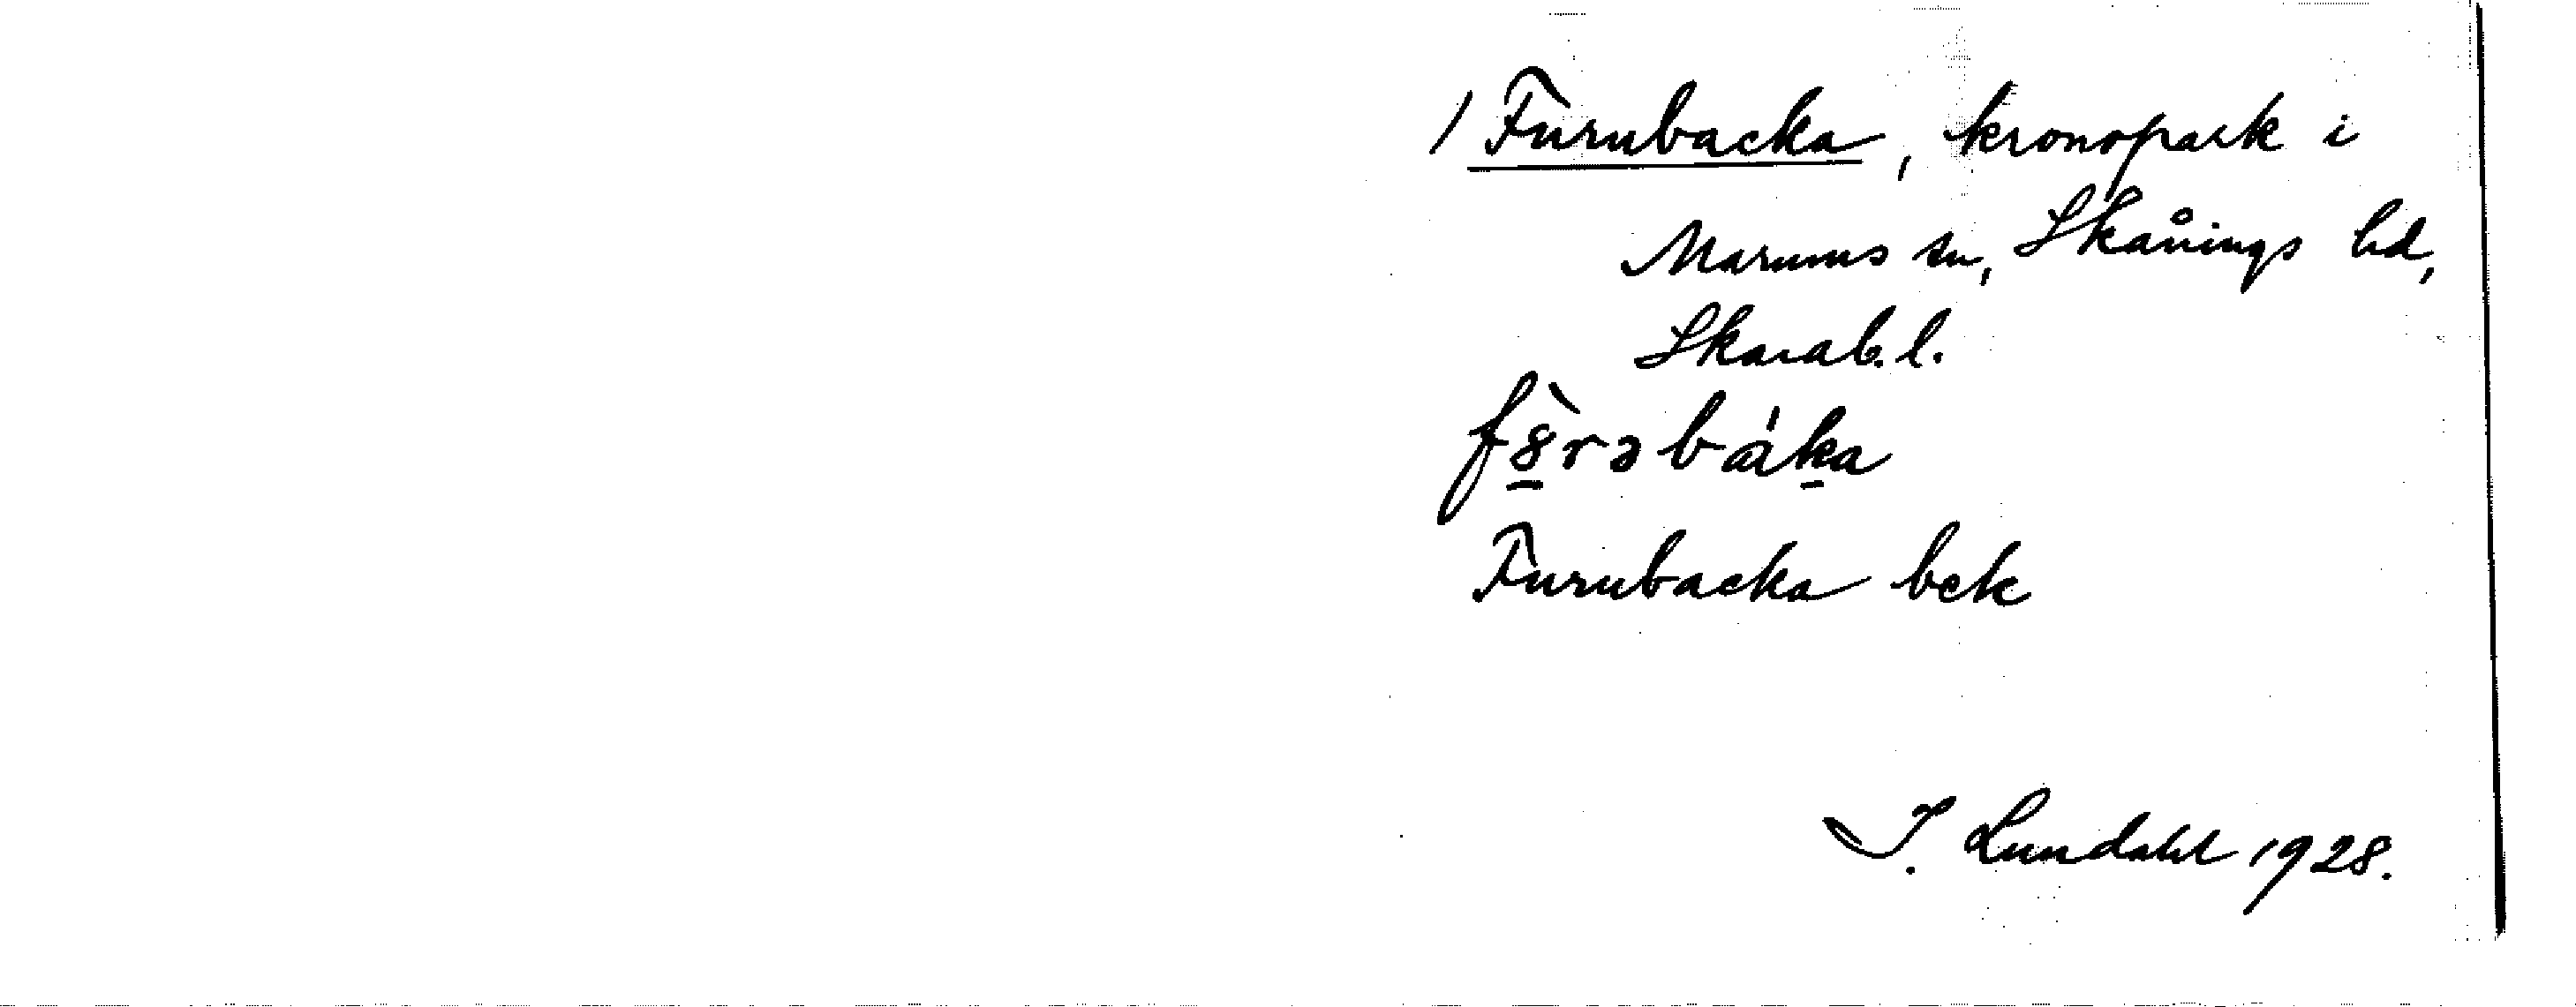 / Furubacka, kronopark i
Marums sn, Skånings hd,
Skarab. l.
fȣ̀rəbáka
Furubacka bek
I. Lundahl 1928.